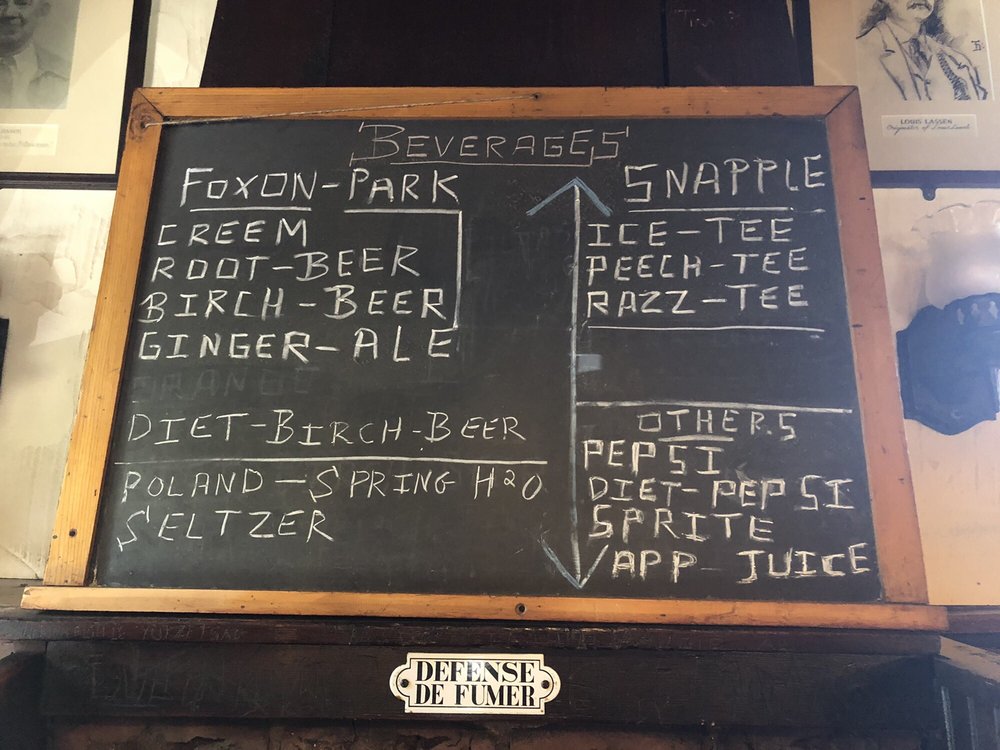 BEVERAGES
FOXON-PARK
CREEM
ROOT-BEER
BIRCH-BEER
GINGER-ALE
ORANGE
DIET-BIRCH-BEER
POLAND-SPRING H2O
SELTZER
SNAPPLE
ICE-TEE
PEECH-TEE
RAZZ-TEE
OTHERS
PEPSI
DIET-PEPSI
SPRITE
APP-JUICE
LOUIS LASSEN
DEFENSE
DE FUMER